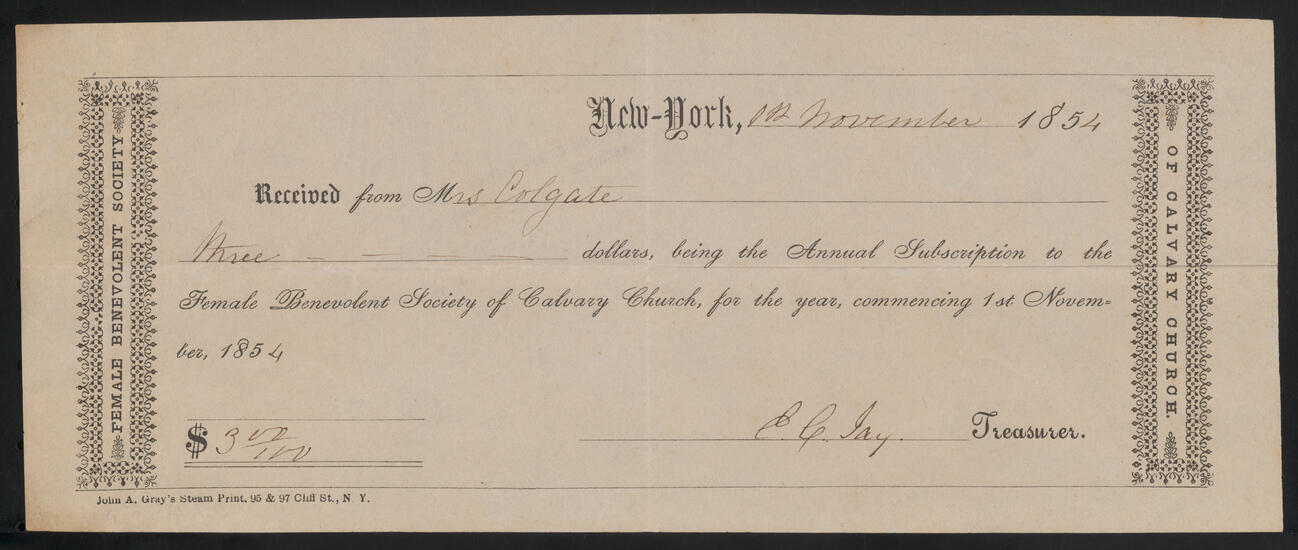 FEMALE BENEVOLENT SOCIETY
New-York, 1st November 1854
Received from Mrs Colgate
three
dollars, being the Annual Subscription to the
Female Benevolent Society of Calvary Church, for the year, commencing 1st Novem-
ber, 1854
$ 3 00/100
Treasurer.
John A. Gray's Steam Print, 95 & 97 Cliff St., N. Y.
OF CALVARY CHURCH.